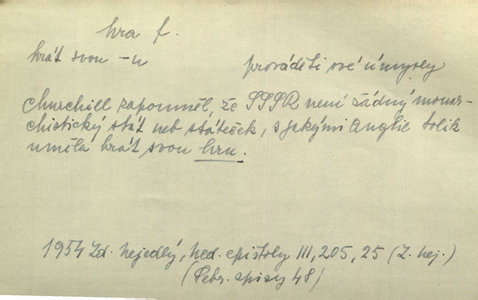 hra f.
hrát svou -u prováděti své úmysly
Churchill zapomněl že SSSR není žádný monar-
chistický stát neb státeček, s jakými Anglie tolik
uměla hrát svou hru.
1954 Zd. Nejedlý, Ned. epištoly III, 205, 25 (Z. Nej.)
(Sebr. spisy 48)